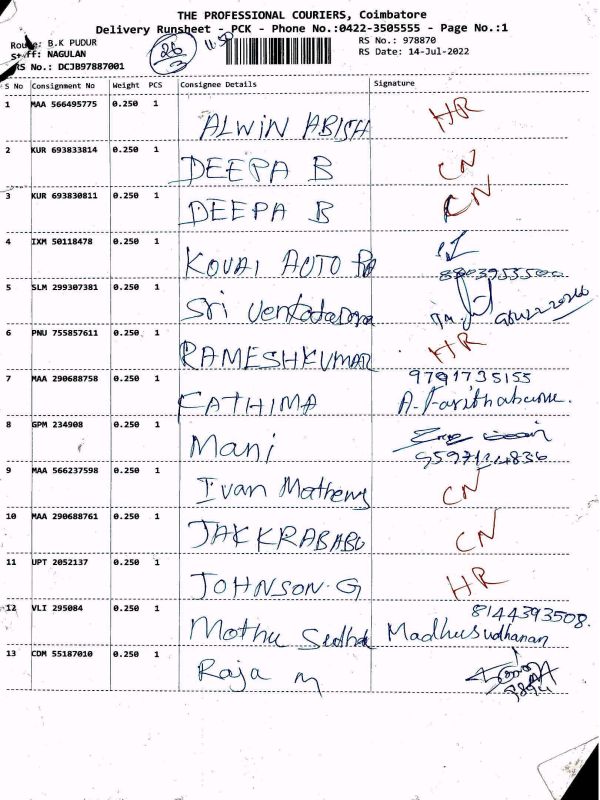 THE PROFESSIONAL COURIERS, Coimbatore
Delivery Runsheet - PCK - Phone No.:0422-3505555 - Page No.:1
Route: B.K PUDUR
Staff: NAGULAN
RS No.: DCJB97887001
26
3
11:50
RS No.: 978870
RS Date: 14-Jul-2022
S No Consignment No Weight PCS Consignee Details Signature
1 MAA 566495775 0.250 1 ALWIN ABISH HR
2 KUR 693833814 0.250 1 DEEPA B CN
3 KUR 693830811 0.250 1 DEEPA B CN
4 IXM 50118478 0.250 1 KOVAI AUTO
5 SLM 299307381 0.250 1 Sri
6 PNU 755857611 0.250 1 RAMESHKUMAR HR
7 MAA 290688758 0.250 1 FATHIMA 9791735155
A. Farithabanu.
8 GPM 234908 0.250 1 Mani
9597124836
9 MAA 566237598 0.250 1 Ivan Mathews CN
10 MAA 290688761 0.250 1 JAKKRABABU CN
11 UPT 2052137 0.250 1 JOHNSON.G HR
12 VLI 295084 0.250 1 Mothu 8144393508.
Madhusudhanan
13 COM 55187010 0.250 1 Raja M